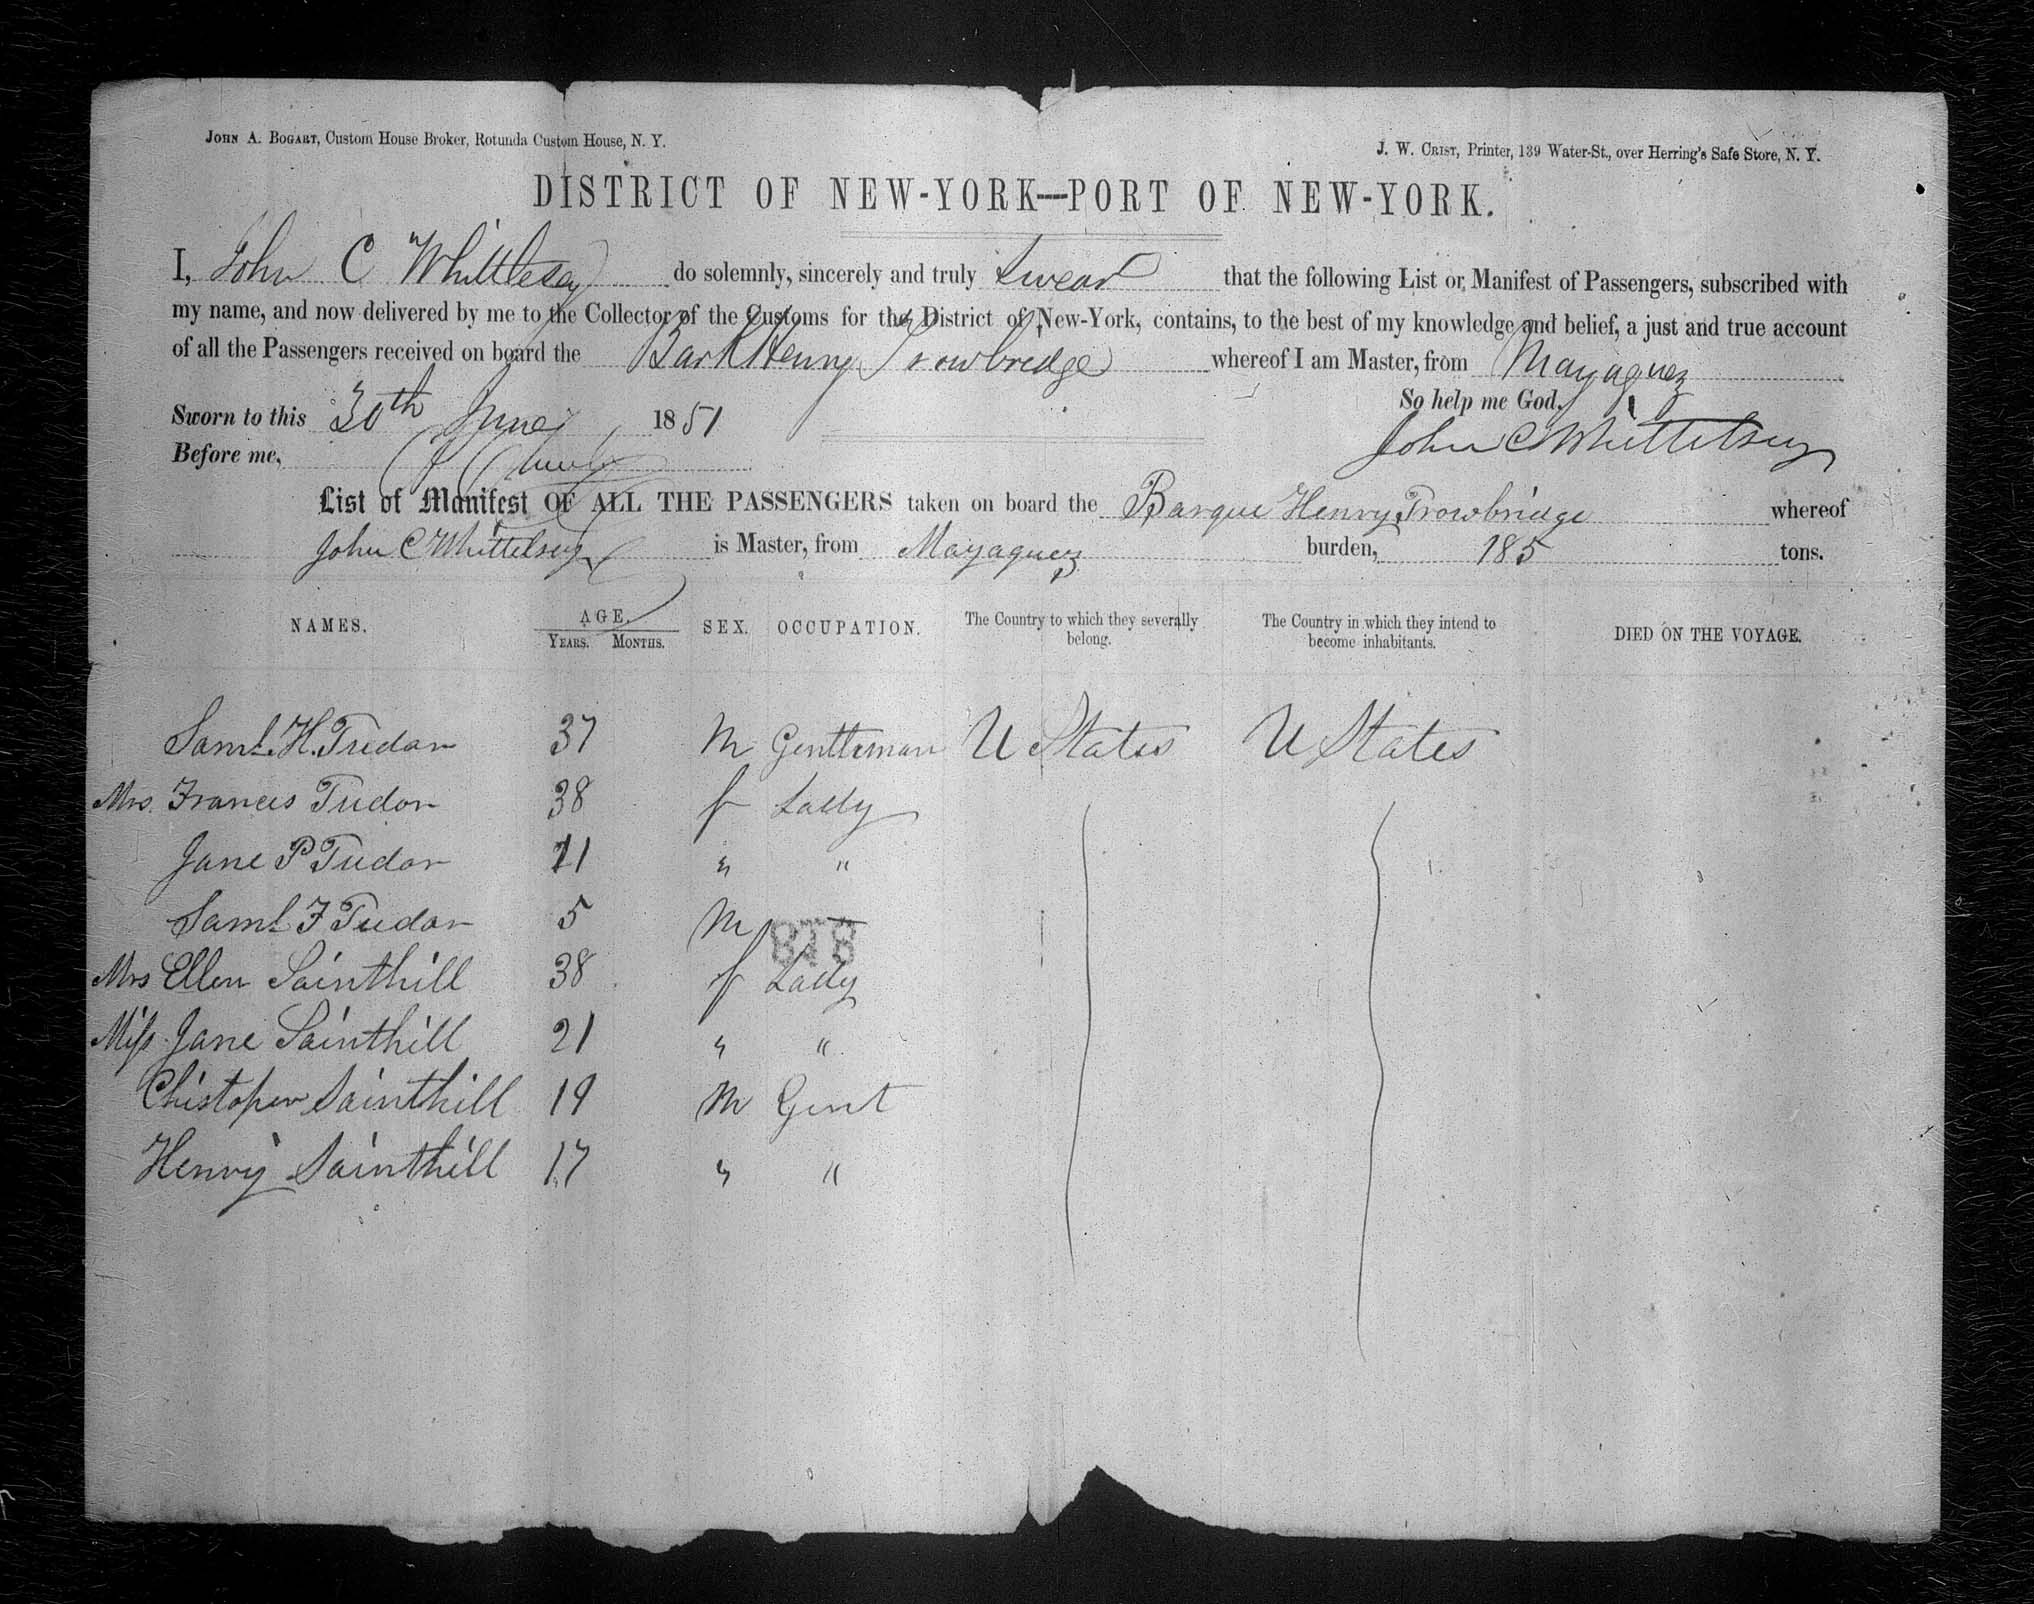 JOHN A. BOGART, Custom House Broker, Rotunda Custom House, N. Y.
J. W. CRIST, Printer, 139 Water-St., over Herring's Safe Store, N. Y.
DISTRICT OF NEW-YORK—PORT OF NEW-YORK.
I, John C Whittlesey do solemnly, sincerely and truly swear that the following List or Manifest of Passengers, subscribed with
my name, and now delivered by me to the Collector of the Customs for the District of New-York, contains, to the best of my knowledge and belief, a just and true account
of all the Passengers received on board the Bark Henry Trowbredge whereof I am Master, from Mayaguez
So help me God.
Sworn to this 30th June 1851
John C Whittelsey
Before me,
List of Manifest OF ALL THE PASSENGERS taken on board the Barque Henry Trowbridge whereof
John C Whittelsey is Master, from Mayaguez burden, 185 tons.
NAMES. AGE. YEARS. MONTHS. SEX. OCCUPATION. The Country to which they severally belong. The Country in which they intend to become inhabitants. DIED ON THE VOYAGE.
Saml. H. Tudor 37 M Gentleman U States U States
Mrs. Francis Tudor 38 f Lady
Jane P Tudor 11 " "
Saml F Tudor 5 M —
818
Mrs Ellen Sainthill 38 f Lady
Miss Jane Sainthill 21 " "
Chistoper Sainthill 19 M Gent
Henry Sainthill 17 " "